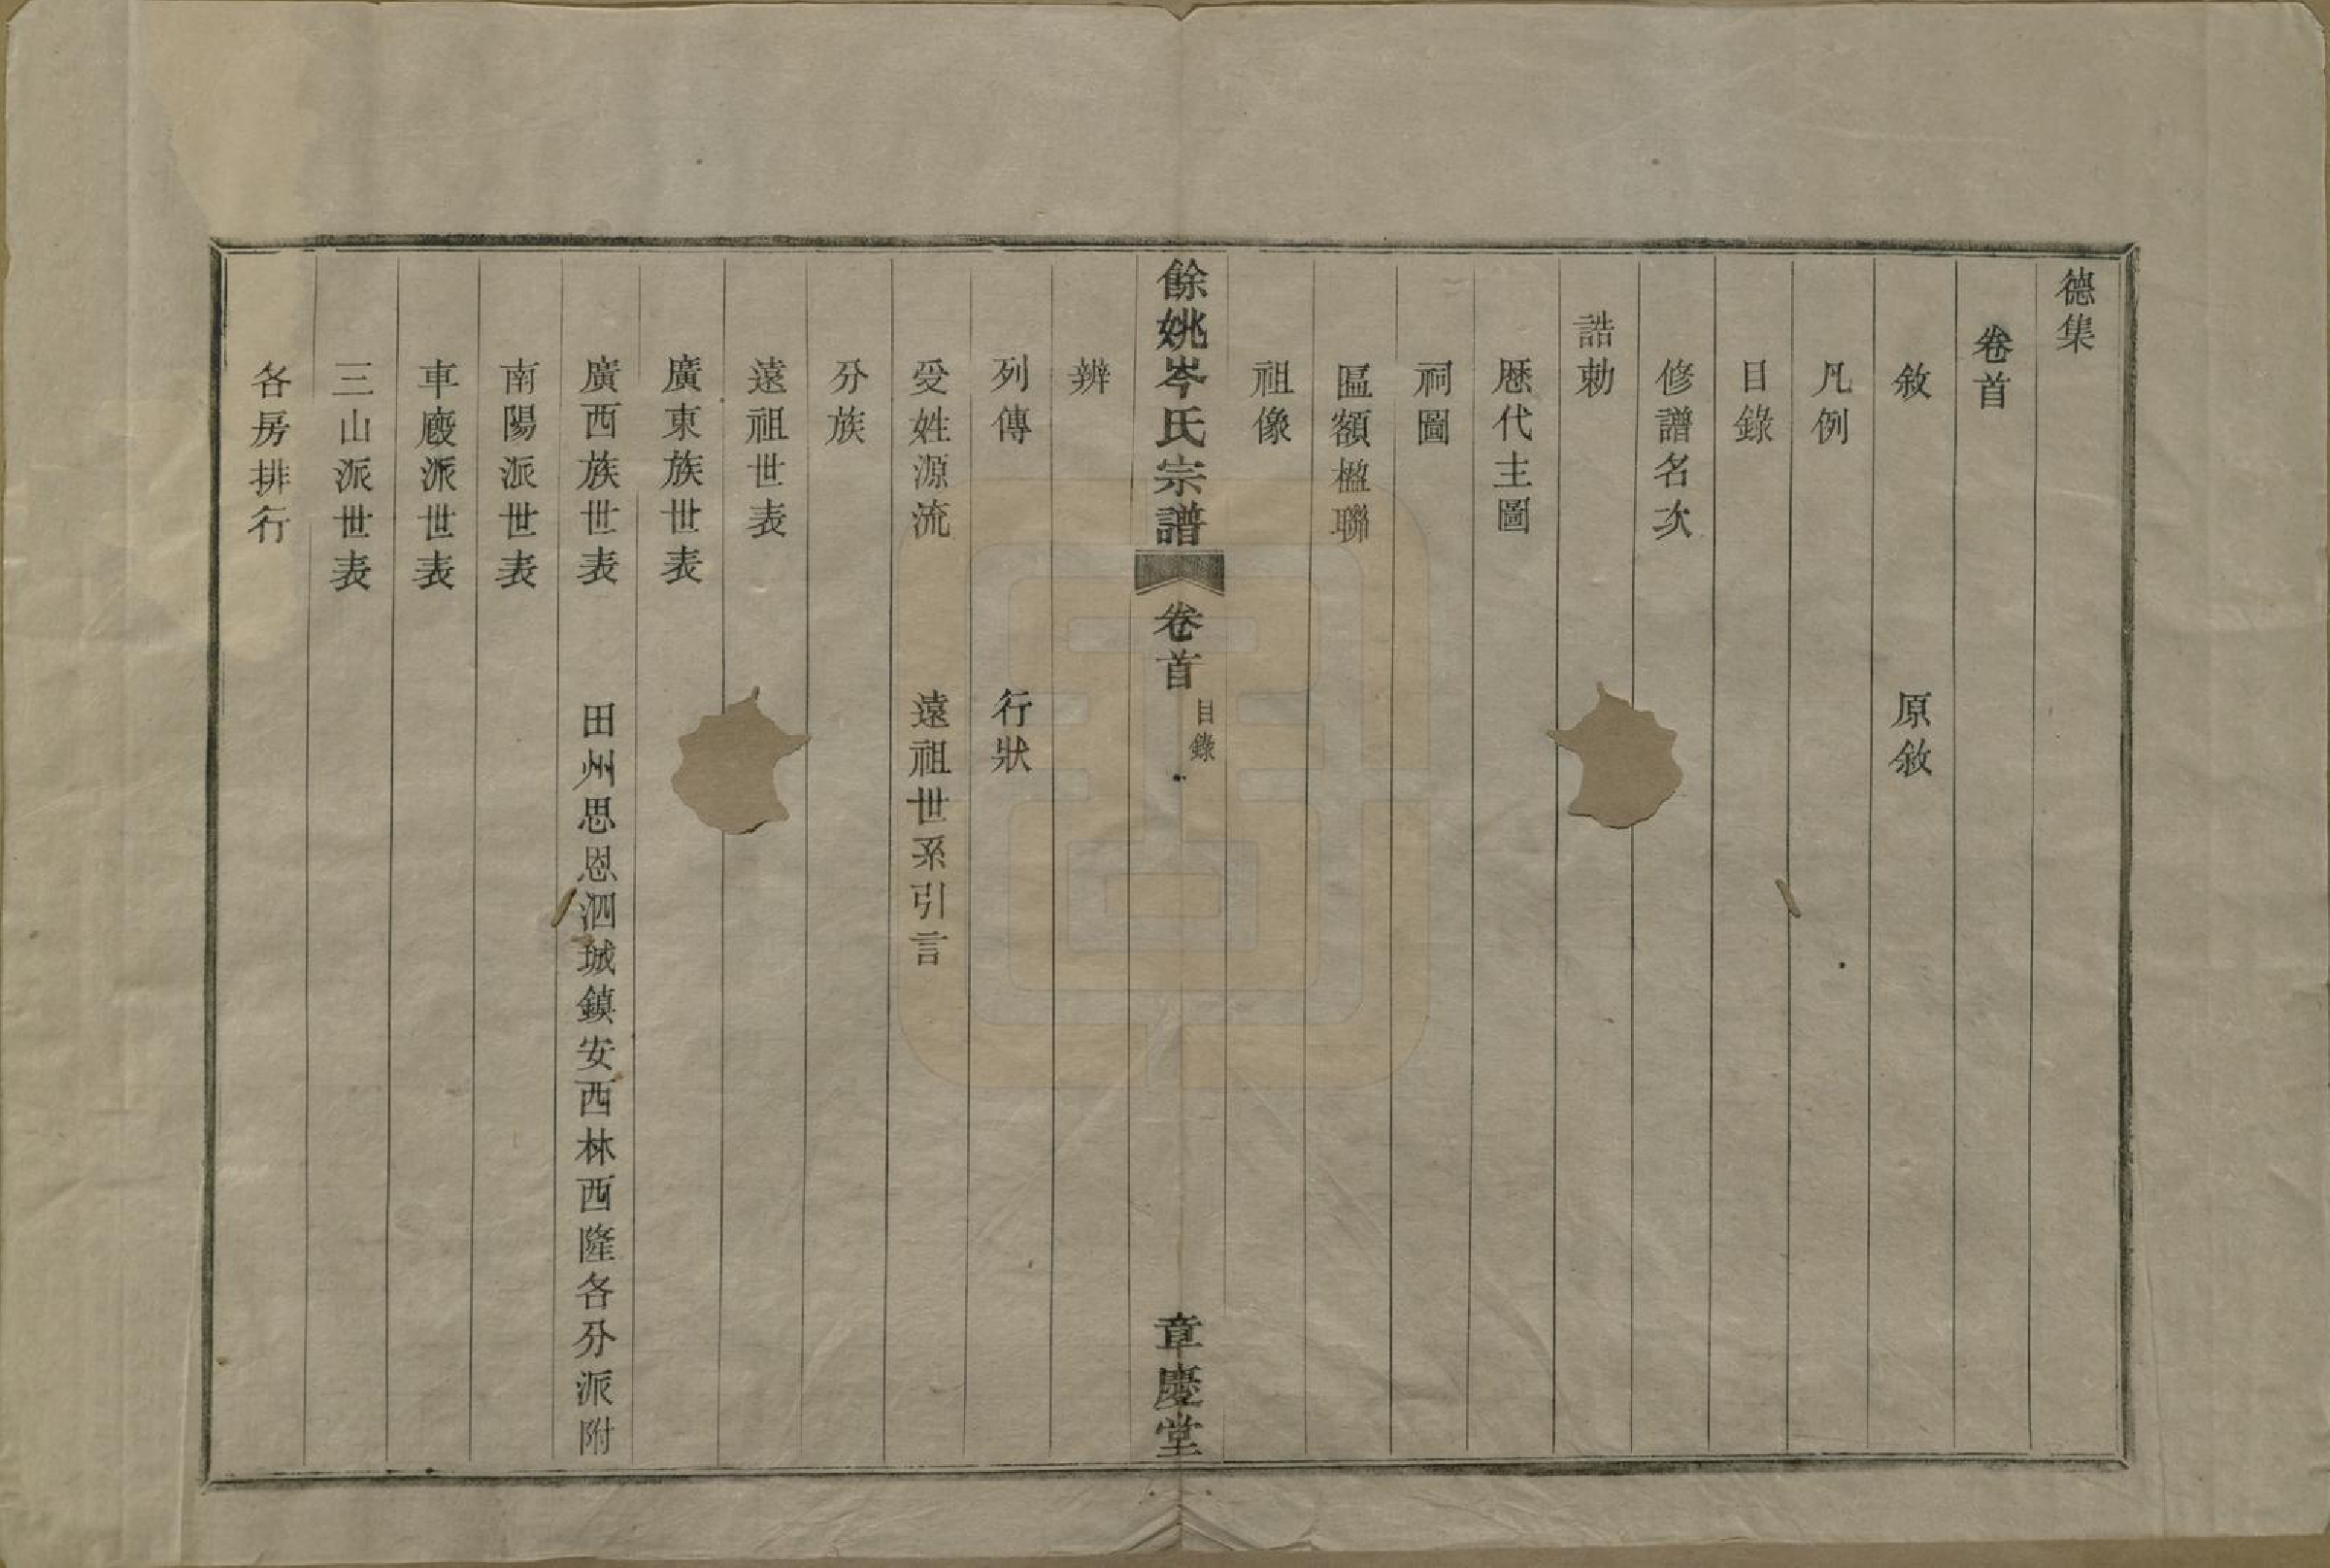 德集
卷首
敘　原敘
凡例
目錄
修譜名次
誥勅
歷代主圖
祠圖
匾額楹聯
祖像
餘姚岑氏宗譜　卷首　目錄　章慶堂
辨
列傳　行狀
受姓源流　遠祖世系引言
分族
遠祖世表
廣東族世表
廣西族世表　田州思恩泗城鎮安西林西隆各分派附
南陽派世表
車廐派世表
三山派世表
各房排行